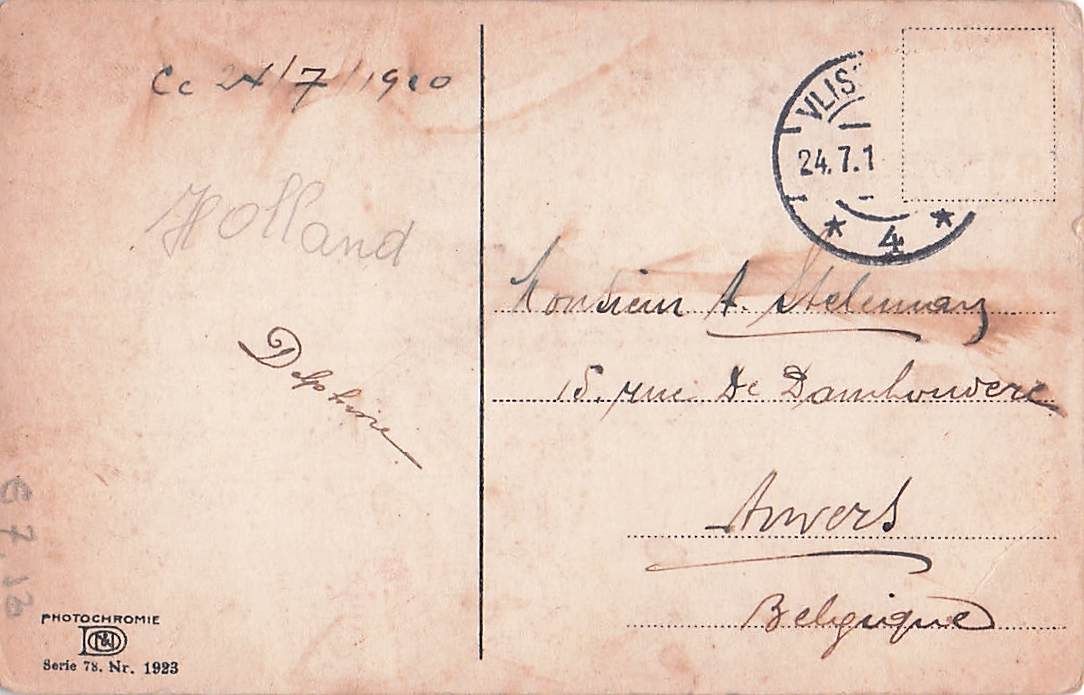 Ce 24/7/1910
Holland
Delphine
G 7.13
PHOTOCHROMIE
D N & D
Serie 78. Nr. 1923
VLIS
24.7.1
4
Monsieur A. Steleman
15. rue De Damhouder
Anvers
Belgique